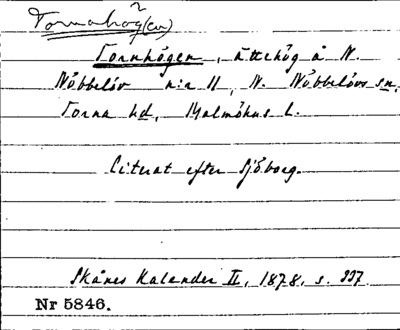 Tornahög(en)
Tornhögen, ättehög å N.
Nöbbelöv n:r 11, N. Nöbbelövs sn,
Torna hd, Malmöhus l.
Citerat efter Sjöborg.
Skånes Kalender II, 1878, s. 337.
Nr 5846.